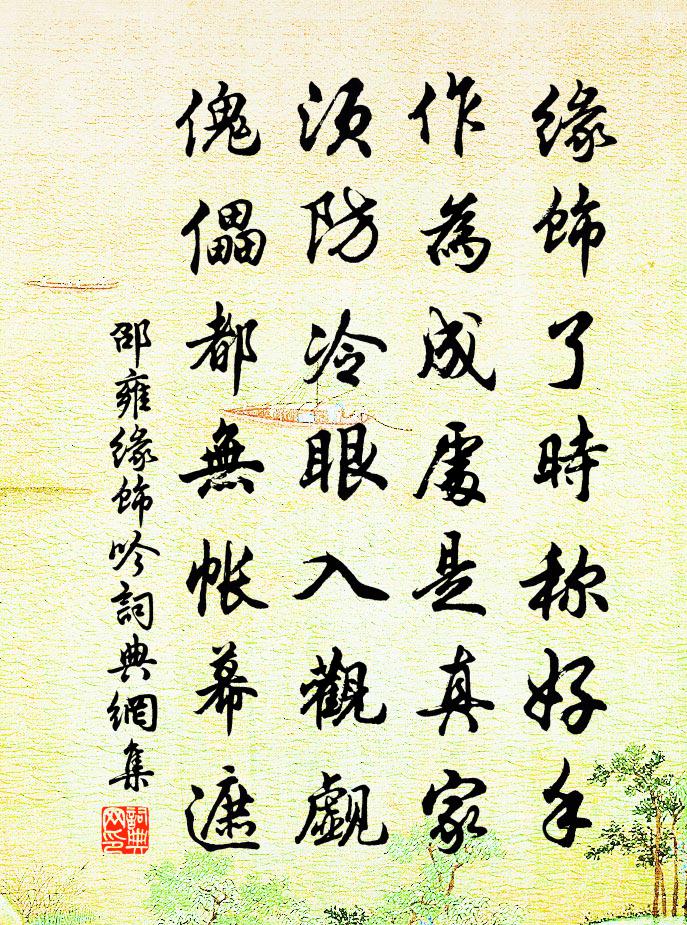 緣飾了時称好手
作為成處是真家
須防冷眼入觀覷
傀儡都無帳幕遮
邵雍緣飾吟詞典網集
詞典網印